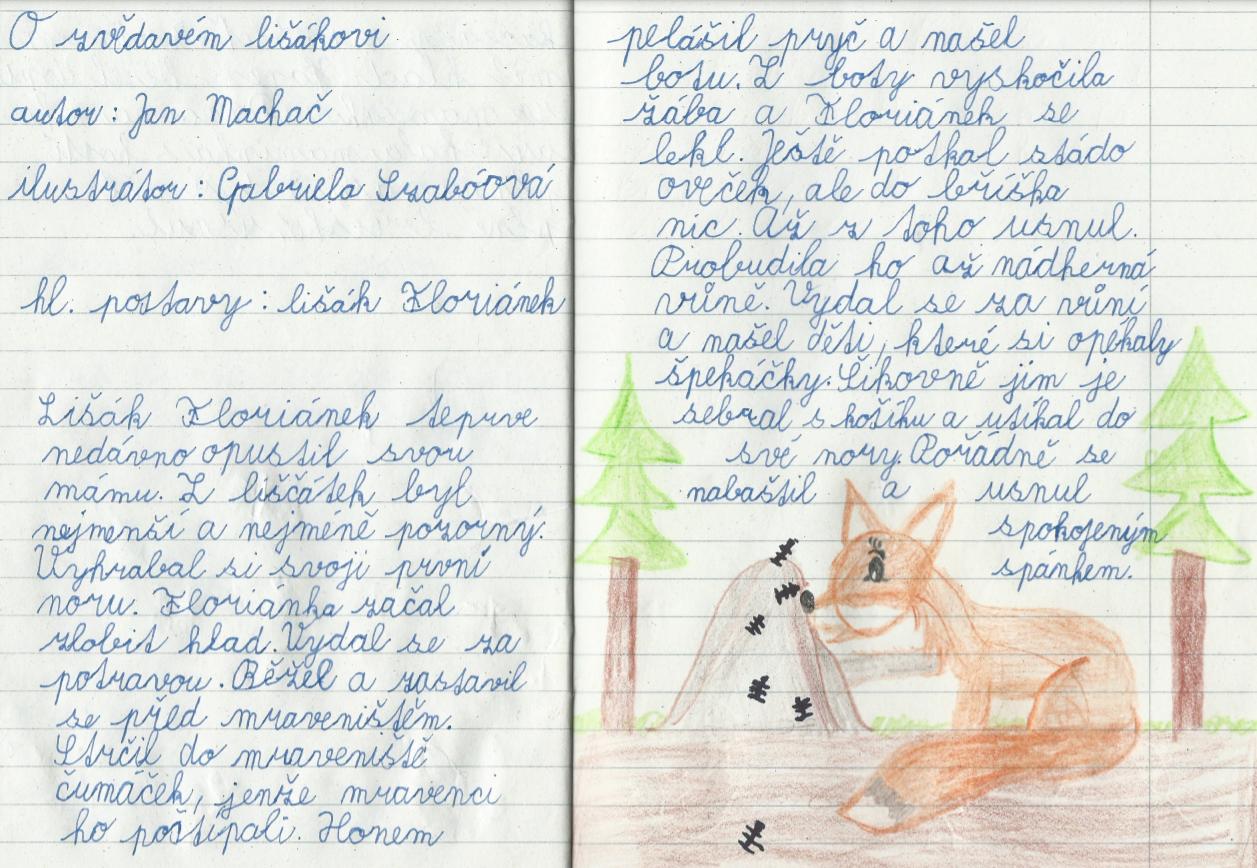 O zvědavém lišákovi
autor: Jan Machač
ilustrátor: Gabriela Szabóová
hl. postavy: lišák Floriánek
Lišák Floriánek teprve
nedávno opustil svou
mámu. Z liščátek byl
nejmenší a nejméně pozorný.
Vyhrabal si svoji první
noru. Floriánka začal
zlobit hlad. Vydal se za
potravou. Běžel a zastavil
se před mraveništěm.
Strčil do mraveniště
čumáček, jenže mravenci
ho poštípali. Honem
pelášil pryč a našel
botu. Z boty vyskočila
žába a Floriánek se
lekl. Ještě potkal stádo
oveček, ale do bříška
nic. Až z toho usnul.
Probudila ho až nádherná
vůně. Vydal se za vůní
a našel děti, které si opékaly
špekáčky. Šikovně jim je
sebral s košíku a utíkal do
své nory. Pořádně se
nabaštil a usnul
spokojeným
spánkem.